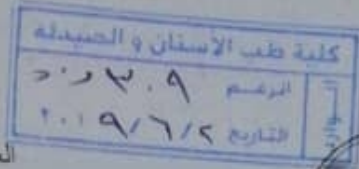 كلية طب الأسنان و الصيدلة
الرقم ٣٠٩
التاريخ ٢٠١٩/٦/٢